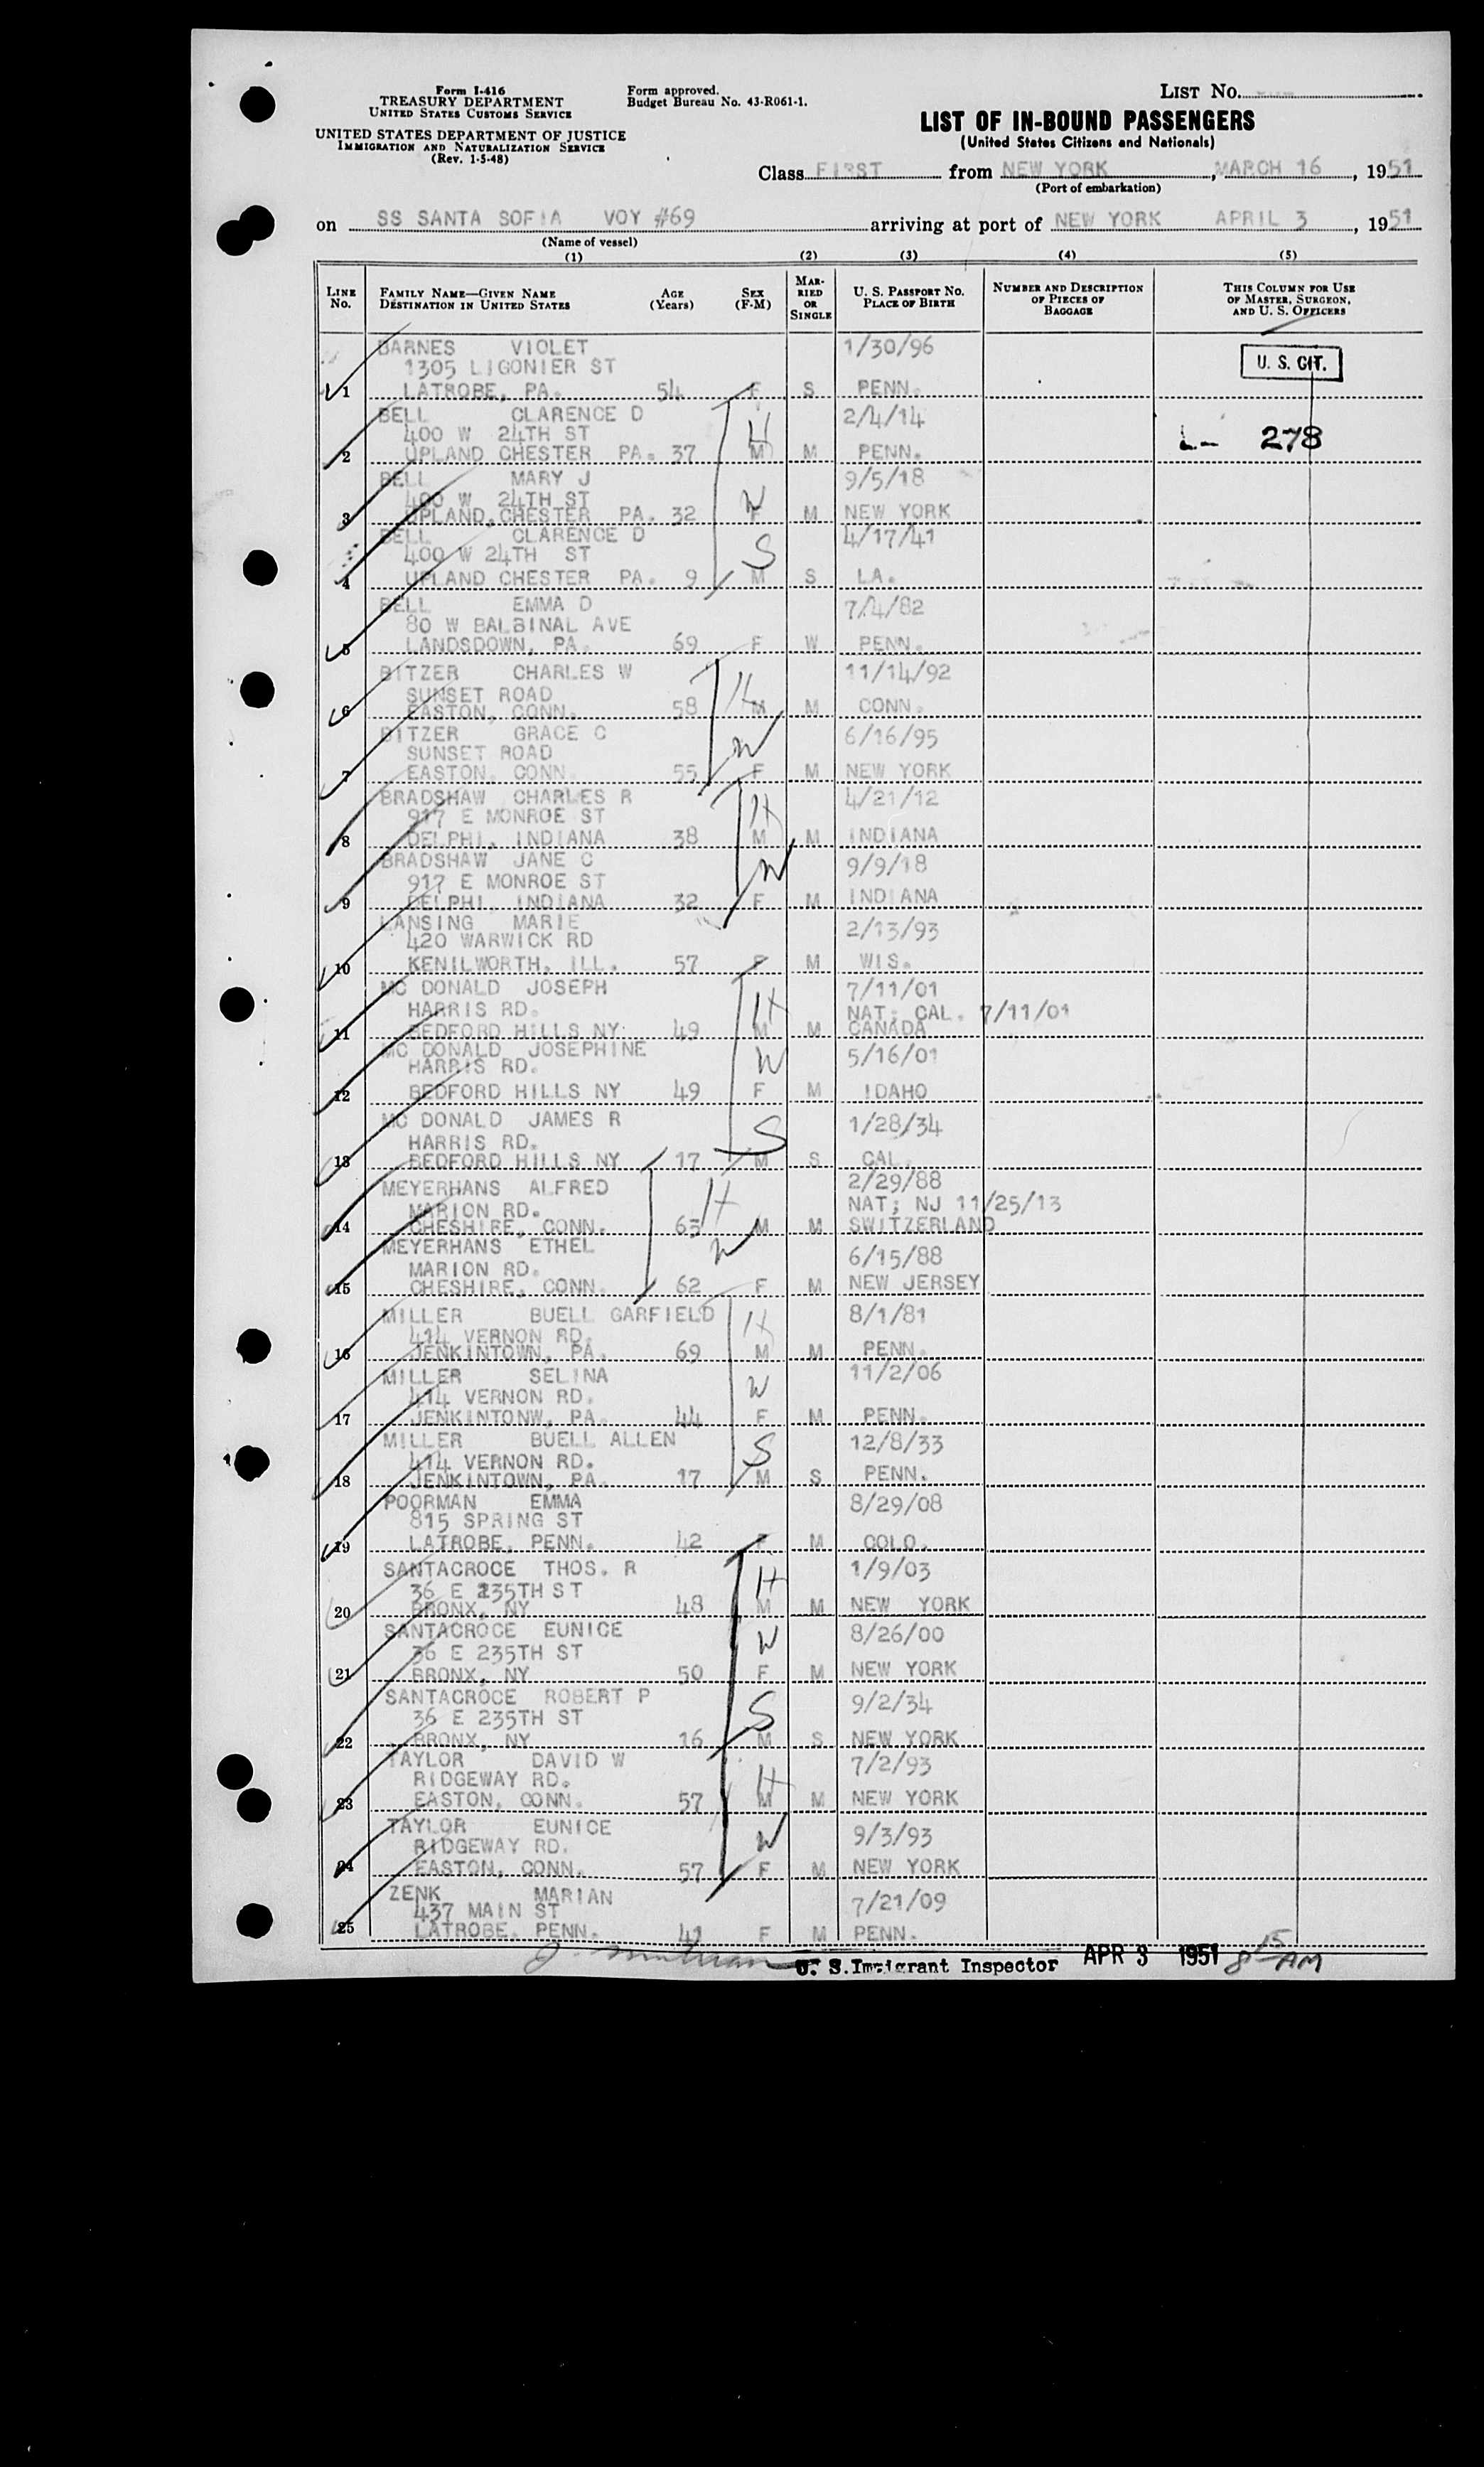 Form I-416
TREASURY DEPARTMENT
UNITED STATES CUSTOMS SERVICE
UNITED STATES DEPARTMENT OF JUSTICE
IMMIGRATION AND NATURALIZATION SERVICE
(Rev. 1-5-48)
Form approved.
Budget Bureau No. 43-R061-1.
LIST NO.
LIST OF IN-BOUND PASSENGERS
(United States Citizens and Nationals)
Class FIRST from NEW YORK, MARCH 16, 1951
(Port of embarkation)
on SS SANTA SOFIA VOY #69 arriving at port of NEW YORK APRIL 3, 1951
(Name of vessel)
(1) (2) (3) (4) (5)
LINE No. FAMILY NAME—GIVEN NAME DESTINATION IN UNITED STATES AGE (Years) SEX (F-M) MARRIED OR SINGLE U. S. PASSPORT NO. PLACE OF BIRTH NUMBER AND DESCRIPTION OF PIECES OF BAGGAGE THIS COLUMN FOR USE OF MASTER, SURGEON, AND U. S. OFFICERS
BARNES VIOLET 1/30/96
1305 LIGONIER ST U. S. CIT.
1 LATROBE, PA. 54 F S PENN.
BELL CLARENCE D 2/4/14
400 W 24TH ST H L- 278
2 UPLAND CHESTER PA. 37 M M PENN.
BELL MARY J 9/5/18
400 W 24TH ST W
3 UPLAND, CHESTER PA. 32 F M NEW YORK
BELL CLARENCE D 4/17/41
400 W 24TH ST S
4 UPLAND CHESTER PA. 9 M S LA.
BELL EMMA D 7/4/82
80 W BALBINAL AVE
5 LANDSDOWN, PA. 69 F W PENN.
BITZER CHARLES W 11/14/92
SUNSET ROAD H
6 EASTON, CONN. 58 M M CONN.
BITZER GRACE C 6/16/95
SUNSET ROAD W
7 EASTON, CONN. 55 F M NEW YORK
BRADSHAW CHARLES R 4/21/12
917 E MONROE ST H
8 DELPHI, INDIANA 38 M M INDIANA
BRADSHAW JANE C 9/9/18
917 E MONROE ST W
9 DELPHI, INDIANA 32 F M INDIANA
LANSING MARIE 2/13/93
420 WARWICK RD
10 KENILWORTH, ILL. 57 F M WIS.
MC DONALD JOSEPH 7/11/01
HARRIS RD. H NAT; CAL. 7/11/01
11 BEDFORD HILLS NY 49 M M CANADA
MC DONALD JOSEPHINE 5/16/01
HARRIS RD. W
12 BEDFORD HILLS NY 49 F M IDAHO
MC DONALD JAMES R 1/28/34
HARRIS RD. S
13 BEDFORD HILLS NY 17 M S CAL.
MEYERHANS ALFRED 2/29/88
MARION RD. H NAT; NJ 11/25/13
14 CHESHIRE, CONN. 63 M M SWITZERLAND
MEYERHANS ETHEL 6/15/88
MARION RD. W
15 CHESHIRE, CONN. 62 F M NEW JERSEY
MILLER BUELL GARFIELD 8/1/81
414 VERNON RD. H
16 JENKINTOWN, PA. 69 M M PENN.
MILLER SELINA 11/2/06
414 VERNON RD. W
17 JENKINTONW, PA. 44 F M PENN.
MILLER BUELL ALLEN 12/8/33
414 VERNON RD. S
18 JENKINTOWN, PA. 17 M S PENN.
POORMAN EMMA 8/29/08
815 SPRING ST
19 LATROBE, PENN. 42 F M COLO.
SANTACROCE THOS. R 1/9/03
36 E 235TH ST H
20 BRONX, NY 48 M M NEW YORK
SANTACROCE EUNICE 8/26/00
36 E 235TH ST W
21 BRONX, NY 50 F M NEW YORK
SANTACROCE ROBERT P 9/2/34
36 E 235TH ST S
22 BRONX, NY 16 M S NEW YORK
TAYLOR DAVID W 7/2/93
RIDGEWAY RD. H
23 EASTON, CONN. 57 M M NEW YORK
TAYLOR EUNICE 9/3/93
RIDGEWAY RD. W
24 EASTON, CONN. 57 F M NEW YORK
ZENK MARIAN 7/21/09
437 MAIN ST
25 LATROBE, PENN. 41 F M PENN.
U. S. Immigrant Inspector APR 3 1951 8 15 AM